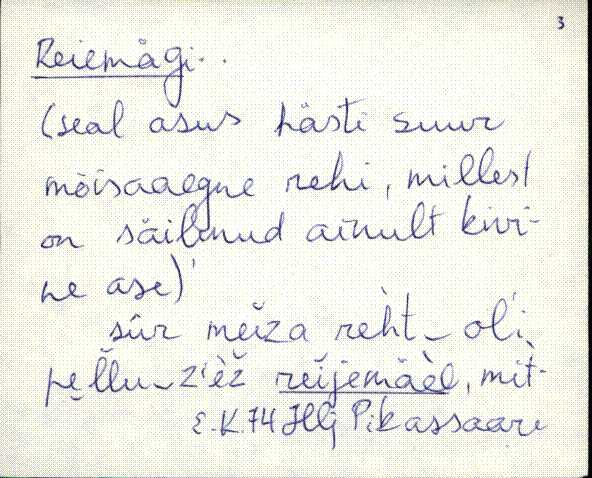 3
Reiemägi..
(seal asus hästi suur
mõisaaegne rehi, millest
on säilinud ainult kivi-
ne ase)
sûr meĭza reh̀t‿ol'i
mit-
E.K. 74 Hlj Pikassaare